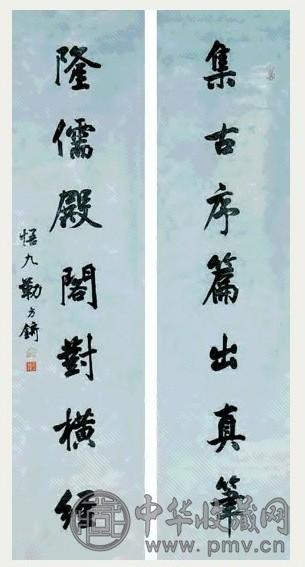 集古序篇出真筆
隆儒殿閣對橫經
悟九勒方錡
中华收藏网
www.pmv.cn